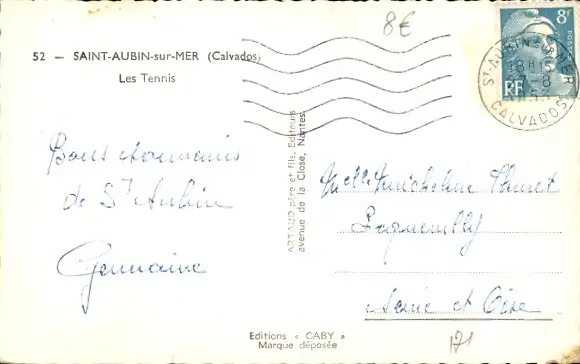 8€
52 — SAINT-AUBIN-sur-MER (Calvados)
Les Tennis
8F
RF
ST AUBIN SUR MER
18H15
CALVADOS
Bons souvenirs
de St Aubin
Germaine
ARTAUD père et fils, Editeurs
avenue de la Close, Nantes
Melle Micheline
Seine et Oise
Editions « GABY »
Marque déposée
171